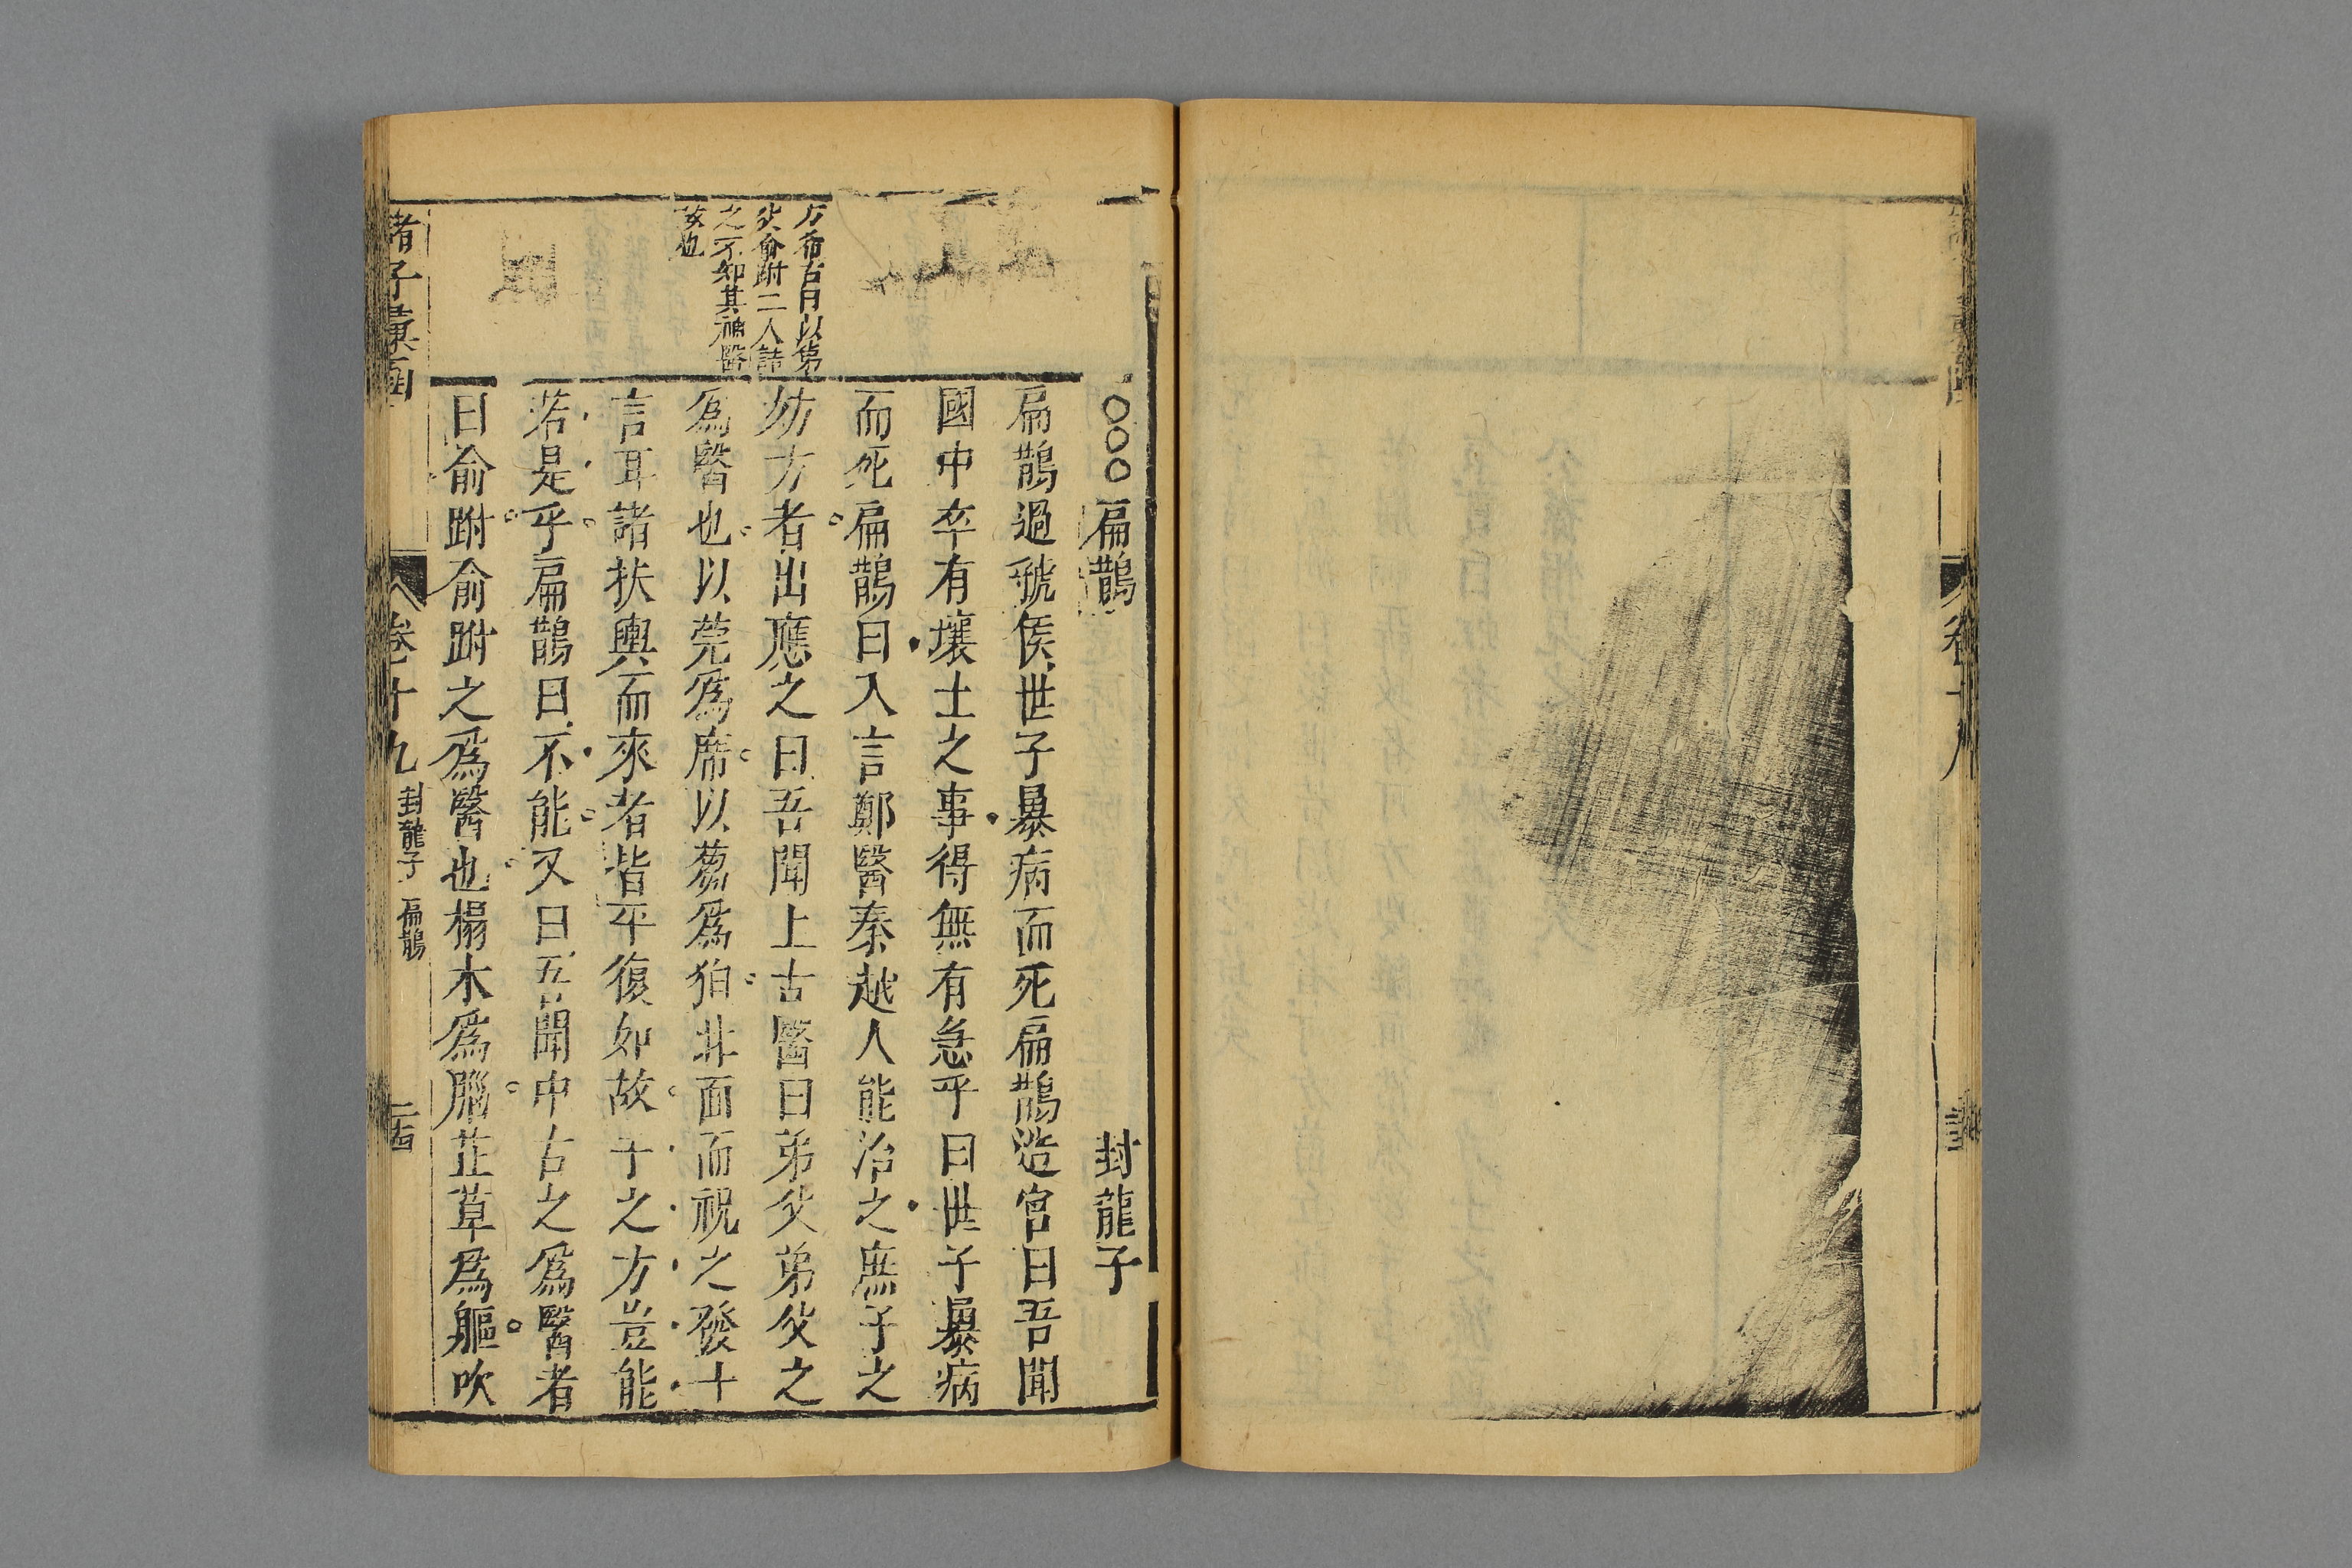 ○○○扁鵲 封龍子
扁鵲過虢侯世子暴病而死扁鵲造宮曰吾聞
國中卒有壤土之事得無有急乎曰世子暴病
而死扁鵲曰入言鄭醫秦越人能治之庶子之
妨方者出應之曰吾聞上古醫曰弟父弟父之
為醫也以莞為席以蒭為狛北面而祝之發十
言耳諸扶輿而來者皆平復如故子之方豈能
若是乎扁鵲曰不能又曰吾聞中古之為醫者
曰俞跗俞跗之為醫也榻木為腦芷草為軀吹
方希古曰以弟
父俞跗二人詰
之不知其神醫
故也
諸子彙函
卷十九 封龍子 扁鵲